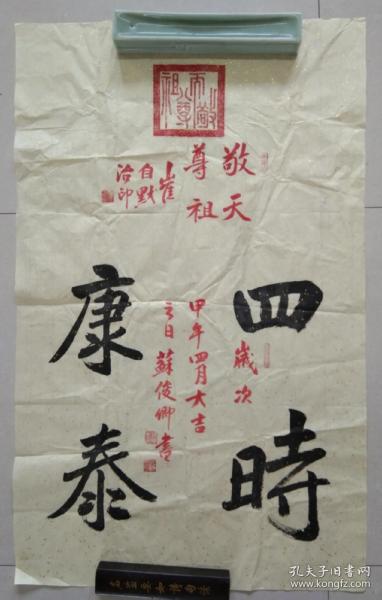 敬天
尊祖
崔
自默
治印
四時
康泰
歲次
甲午四月大吉
之日蘇俊卿書
孔夫子旧书网
www.kongfz.com